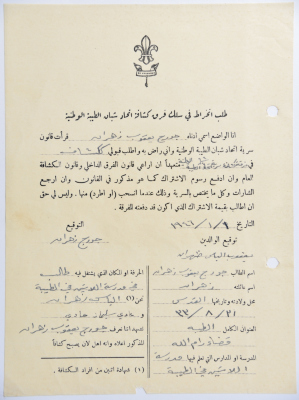 طلب انخراط في سلك فرق كشافة اتحاد شبان الطيبة الوطنية
انا الواضع اسمي ادناه جورج يعقوب زهران قرأت قانون
سرية اتحاد شبان الطيبة الوطنية واني راض به واطلب قبولي
متعهداً ان اراعي قانون الفرق الداخلي وقانون الكشافة
العام وان ادفع رسوم الاشتراك كما هو مذكور في القانون وان ارجع
الشارات وكل ما يختص بالسرية وذلك عندما انسحب (او اطرد) منها. وليس لي حق
ان اطالب بقيمة الاشتراك الذي اكون قد دفعته للفرقة.
التاريخ ٩ / ١ / التوقيع
توقيع الوالدين جورج زهران
يعقوب الياس
اسم الطالب جورج يعقوب زهران
اسم عائلته زهران
محل ولادته وتاريخها القدس
٢١ / ٨ / ٣٣
العنوان الكامل الطيبة
قضاء رام الله
المدرسة او المدارس التي تعلم فيها مدرسة
اللاتين في الطيبة
الحرفة او المكان الذي يشتغل فيه طالب
في مدرسة اللاتين في الطيبة
نحن (١) الياس زهران
و
نشهد اننا نعرف جورج يعقوب زهران
المذكور اعلاه وانه اهل لان يصبح كشافاً
(١) شهادة اثنين من افراد الكشافة.